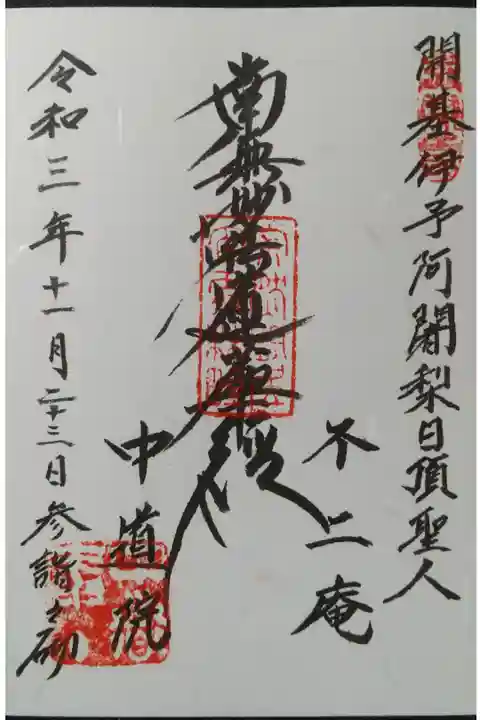 開基伊予阿闍梨日頂聖人
不二庵
南無妙法蓮華経
中道院
令和三年十一月二十三日参詣之砌